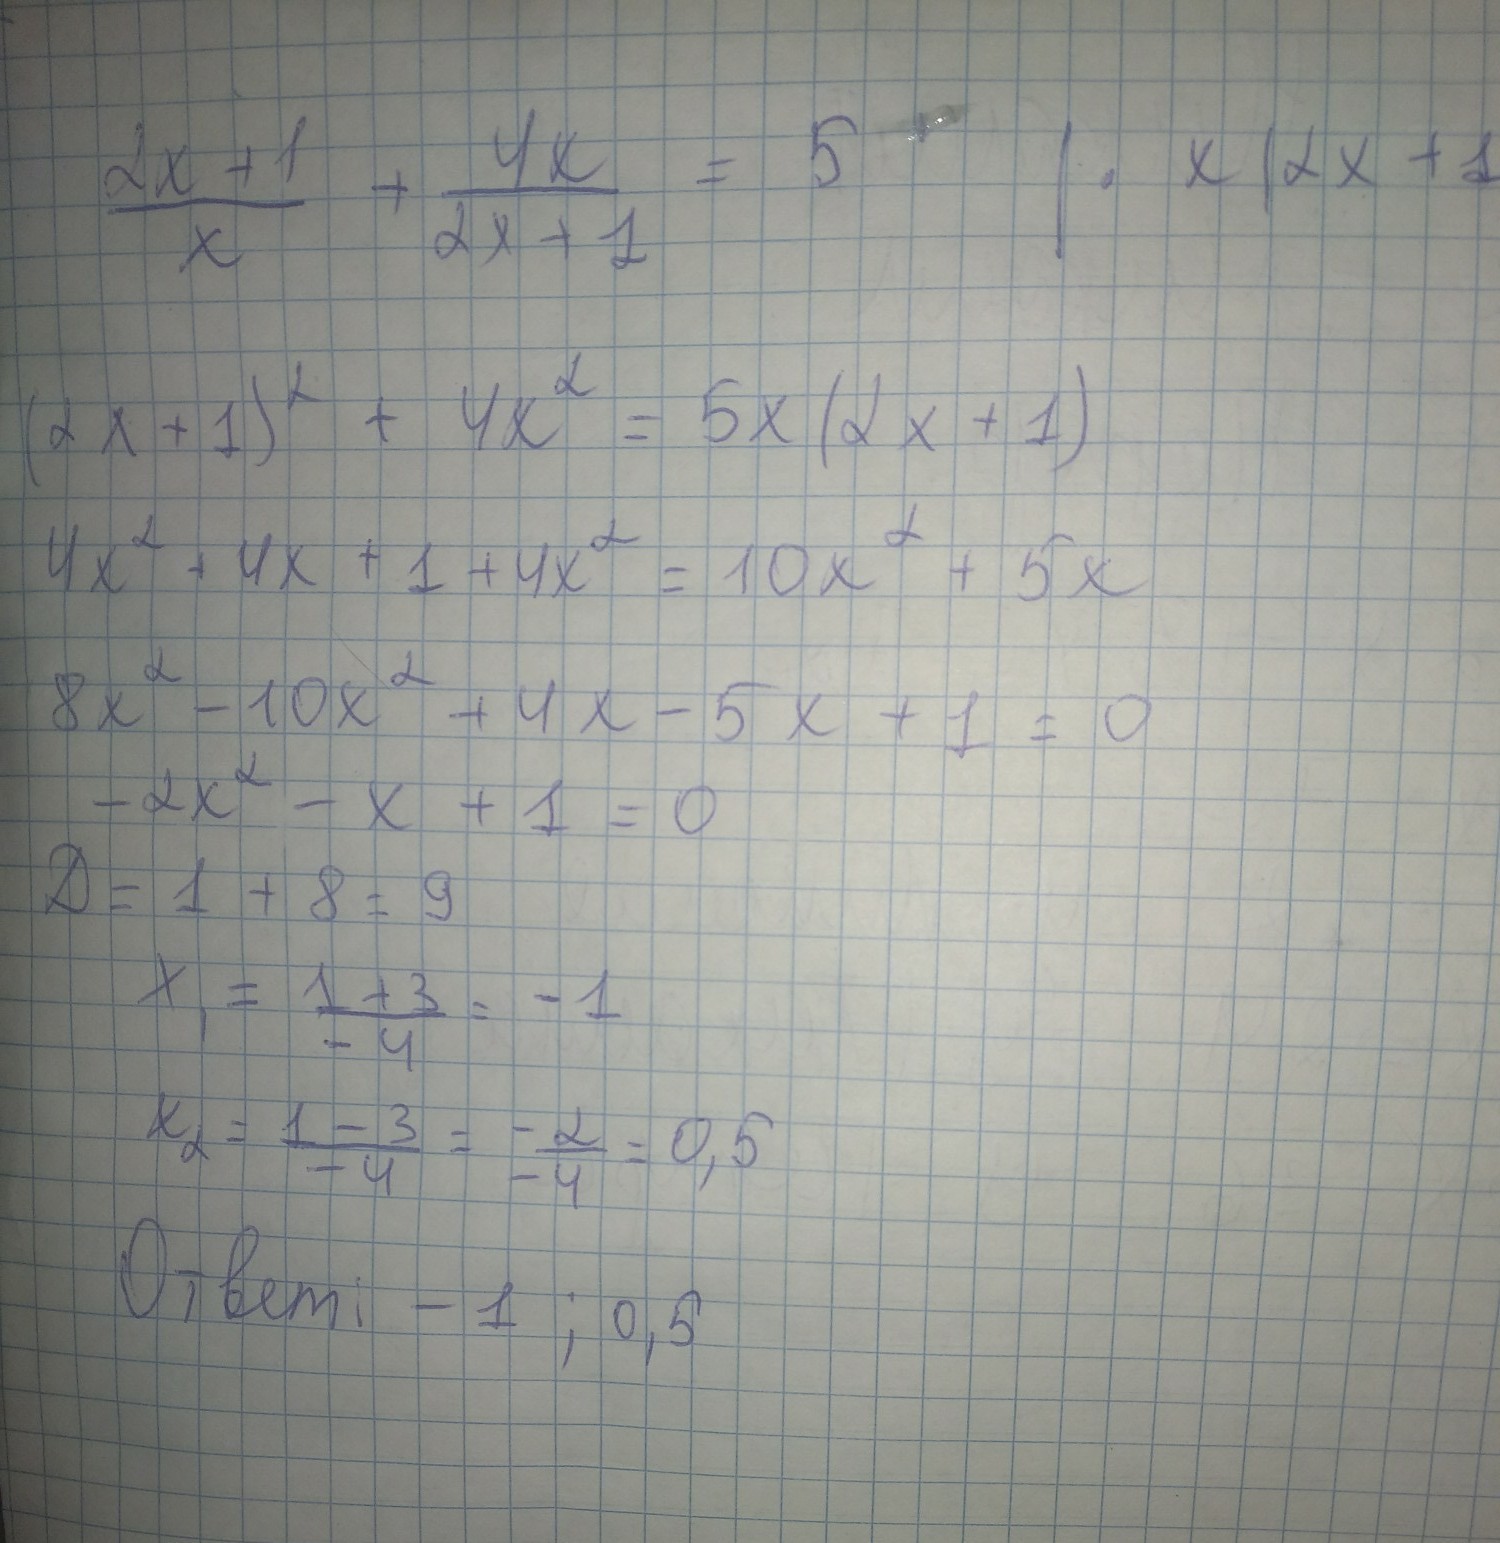 (2x+1)/x + 4x/(2x+1) = 5 | · x(2x+1
(2x+1)² + 4x² = 5x(2x+1)
4x² + 4x + 1 + 4x² = 10x² + 5x
8x² - 10x² + 4x - 5x + 1 = 0
-2x² - x + 1 = 0
D = 1 + 8 = 9
x₁ = (1+3)/(-4) = -1
x₂ = (1-3)/(-4) = (-2)/(-4) = 0,5
Ответ: -1 ; 0,5